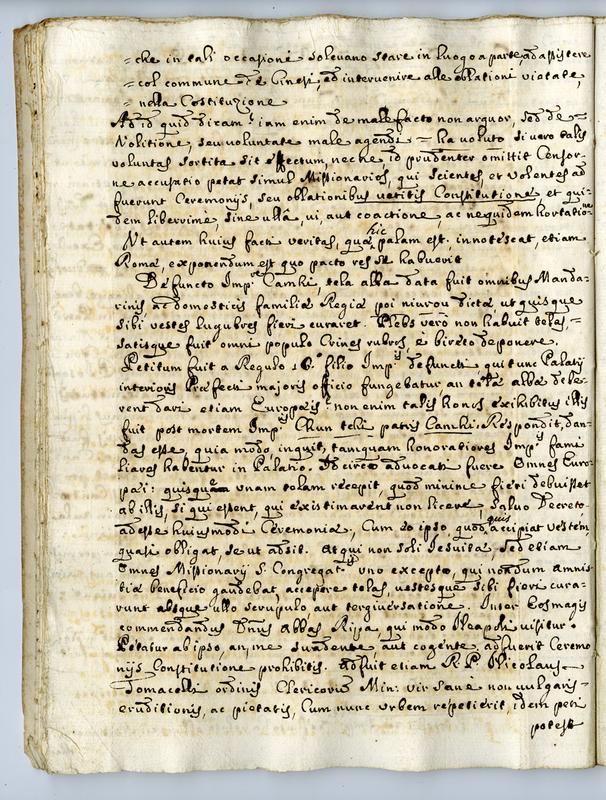 = che in tali occasioni solevano stare in luogo a parte, ed assistere
= col commune de Cinesi, ed intervenire alle oblationi vietate,
= nella Costituzione
Ad id quid dicam? iam enim de male facto non arguor, sed de
Volitione, seu voluntate male agendi = ha voluto, si vero talis
voluntas sortita sit effectum, nec ne id prudenter omittit Censor-
ne accusatio petat simul Missionarios, qui scientes, et volentes ad
fuerunt Ceremonijs, seu oblationibus vetitis Constitutione et qui-
dem liberrime, sine ulla, vi, aut coactione, ac nequidem hortatione
Ut autem huius facti veritas, quæ hic palam est, innotescat, etiam
Romæ, exponendum est quo pacto res se habuerit
Defuncto Impre Camhi, tela alba data fuit omnibus Manda-
rinis, ac domesticis familiæ Regiæ poi niurou dictæ, ut quisque
sibi vestes lugubres fieri curaret. Plebs vero non habuit telas, =
satisque fuit omni populo Crines rubros e bireto deponere.
Petitum fuit a Regulo 16o filio Impris defuncti qui tunc Palatij
interioris Præfecti majoris officio fungebatur an tela alba debe-
rent dari etiam Europæis: non enim talis honos exhibitus illis
fuit post mortem Impris Chun tchi patris Camhi. Respondit, dan-
das esse, quia modo, inquit, tamquam honoratiores Impris fami
liares habentur in Palatio. Idcirco advocati fuere Omnes Euro-
pæi: quisque unam telam recepit, quod minime fieri debuisset
ab illis, si qui essent, qui existimarent non licere, salvo Decreto
adesse huiusmodi Ceremoniæ, Cum eo ipso, quod quis accipiat vestem,
quasi obligat, se ut adsit. Atqui non soli Iesuitæ, sed etiam
Omnes Missionarij S. Congregatis uno excepto, qui nondum amnis
tiæ beneficio gaudebat, accepere telas, vestesque sibi fieri cura-
runt absque ullo scrupulo, aut tergiversatione. Inter eos magis
commendandus Dnus Abbas Ripa, qui modo Neapoli visitur.
Petatur ab ipso, an, me suadente aut cogente, adfuerit Ceremo
nijs Constitutione prohibitis. Adfuit etiam R. P. Nicolaus
Tomacelli ordinis Clericorum Min: vir sane non vulgaris
eruditionis, ac pietatis, Cum nunc urbem repetierit, idem peti
potest